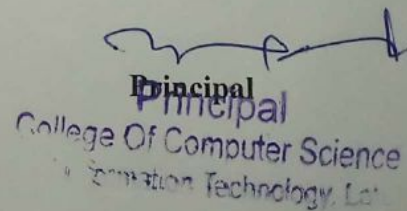 Principal
Principal
College Of Computer Science
Technology,